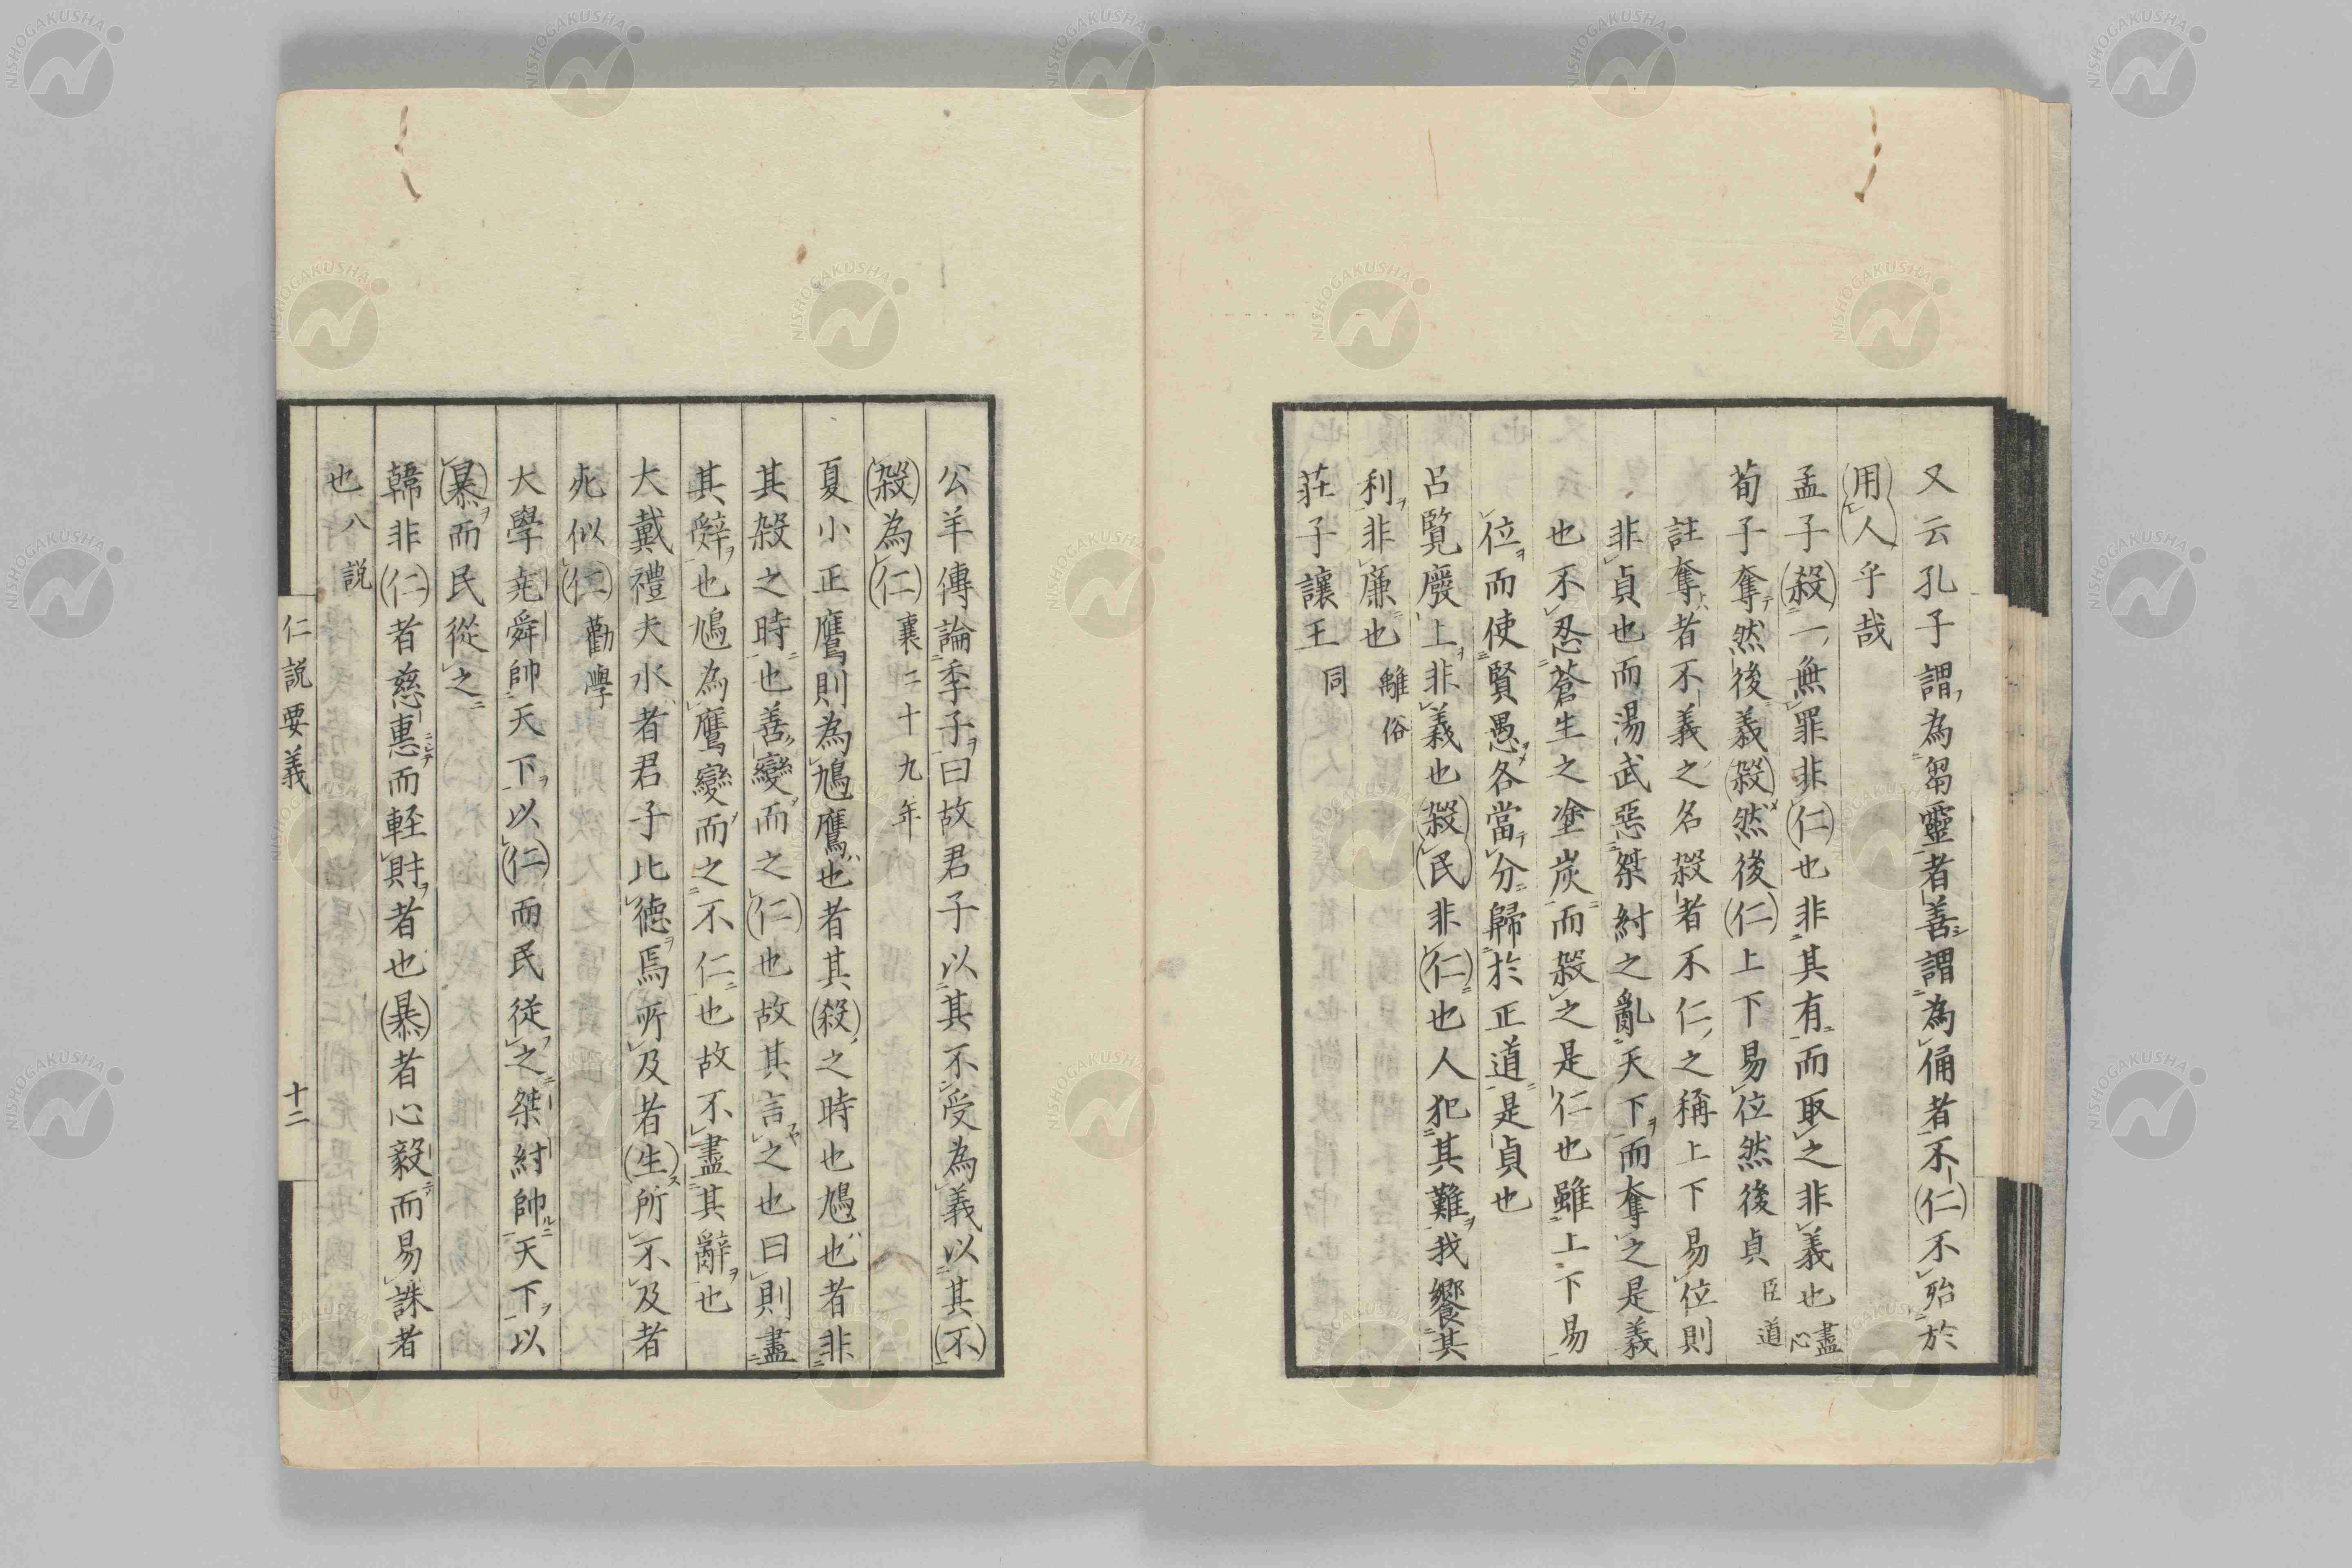 又云孔子謂為芻靈者善謂為俑者不仁不殆於
用人乎哉
孟子殺一無罪非仁也非其有而取之非義也盡心
荀子奪然後義殺然後仁上下易位然後貞臣道
註奪者不義之名殺者不仁之稱上下易位則
非貞也而湯武惡桀紂之亂天下而奪之是義
也不忍蒼生之塗炭而殺之是仁也雖上下易
位而使賢愚各當分歸於正道是貞也
呂覽廢上非義也殺民非仁也人犯其難我饗其
利非廉也離俗
莊子讓王同
公羊傳論季子曰故君子以其不受為義以其不
殺為仁襄二十九年
夏小正鷹則為鳩鷹也者其殺之時也鳩也者非
其殺之時也善變而之仁也故其言之也曰則盡
其辭也鳩為鷹變而之不仁也故不盡其辭也
大戴禮夫水者君子比德焉所及者生所不及者
死似仁勸學
大學堯舜帥天下以仁而民從之桀紂帥天下以
暴而民從之
韓非仁者慈惠而輕財者也暴者心毅而易誅者
也八說
仁說要義
十二
NISHOGAKUSHA